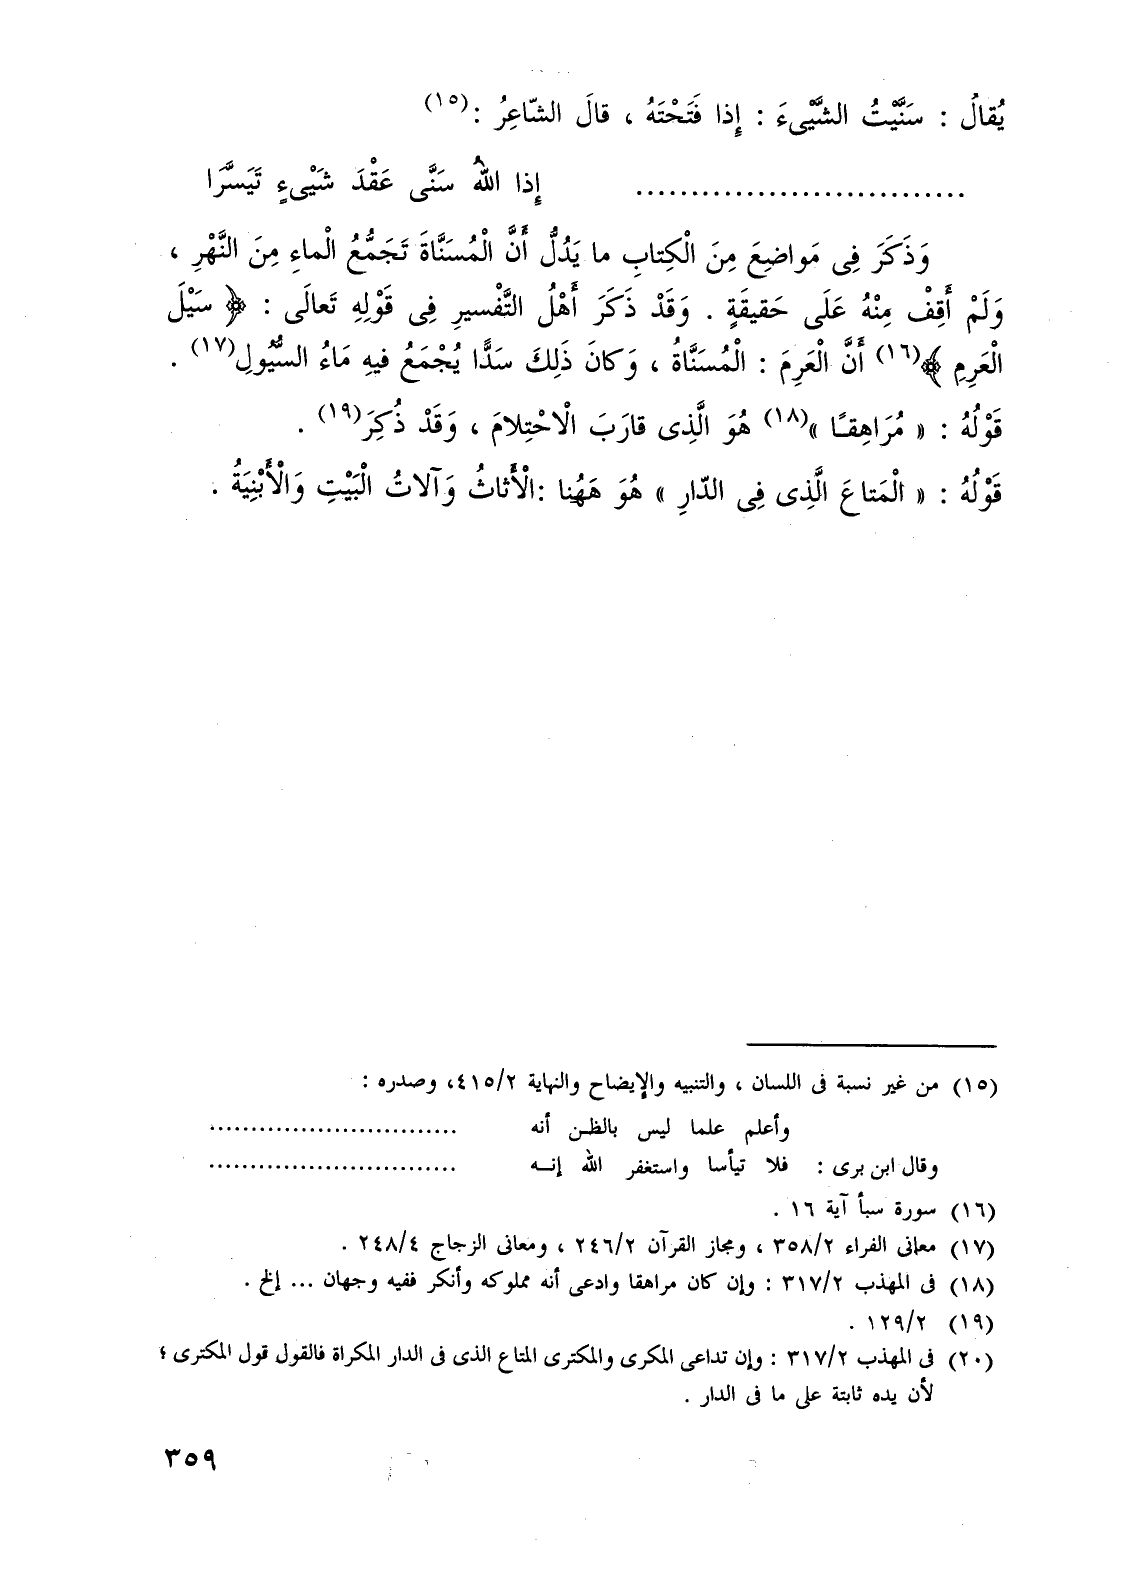 يُقالُ : سَنَّيْتُ الشَّيْىءَ : إِذا فَتَحْتَهُ ، قالَ الشّاعِرُ :(١٥)
.............................. إِذا اللهُ سَنَّى عَقْدَ شَيْىءٍ تَيَسَّرَا
وَذَكَرَ فِى مَواضِعَ مِنَ الْكِتابِ ما يَدُلُّ أَنَّ الْمُسَنَّاةَ تَجَمُّعُ الْماءِ مِنَ النَّهْرِ ،
وَلَمْ أَقِفْ مِنْهُ عَلَى حَقيقَةٍ . وَقَدْ ذَكَرَ أَهْلُ التَّفْسيرِ فِى قَوْلِهِ تَعالَى : ﴿ سَيْلَ
الْعَرِمِ ﴾(١٦) أَنَّ الْعَرِمَ : الْمُسَنَّاةُ ، وَكانَ ذَلِكَ سَدًّا يُجْمَعُ فيهِ مَاءُ السُّيُولِ(١٧) .
قَوْلُهُ : « مُرَاهِقًا »(١٨) هُوَ الَّذِى قارَبَ الْاحْتِلامَ ، وَقَدْ ذُكِرَ(١٩) .
قَوْلُهُ : « الْمَتاعَ الَّذِى فِى الدّارِ » هُوَ هَهُنا :الْأَثاثُ وَآلاتُ الْبَيْتِ وَالْأَبْنِيَةُ .
(١٥) من غير نسبة فى اللسان ، والتنبيه والإيضاح والنهاية ٤١٥/٢، وصدره :
وأعلم علما ليس بالظن أنه ..............................
وقال ابن برى : فلا تيأسا واستغفر الله إنه ..............................
(١٦) سورة سبأ آية ١٦ .
(١٧) معانى الفراء ٣٥٨/٢ ، ومجاز القرآن ٢٤٦/٢ ، ومعانى الزجاج ٢٤٨/٤ .
(١٨) فى المهذب ٣١٧/٢ : وإن كان مراهقا وادعى أنه مملوكه وأنكر ففيه وجهان ... إلخ .
(١٩) ١٢٩/٢ .
(٢٠) فى المهذب ٣١٧/٢ : وإن تداعى المكرى والمكترى المتاع الذى فى الدار المكراة فالقول قول المكترى ؛
لأن يده ثابتة على ما فى الدار .
٣٥٩